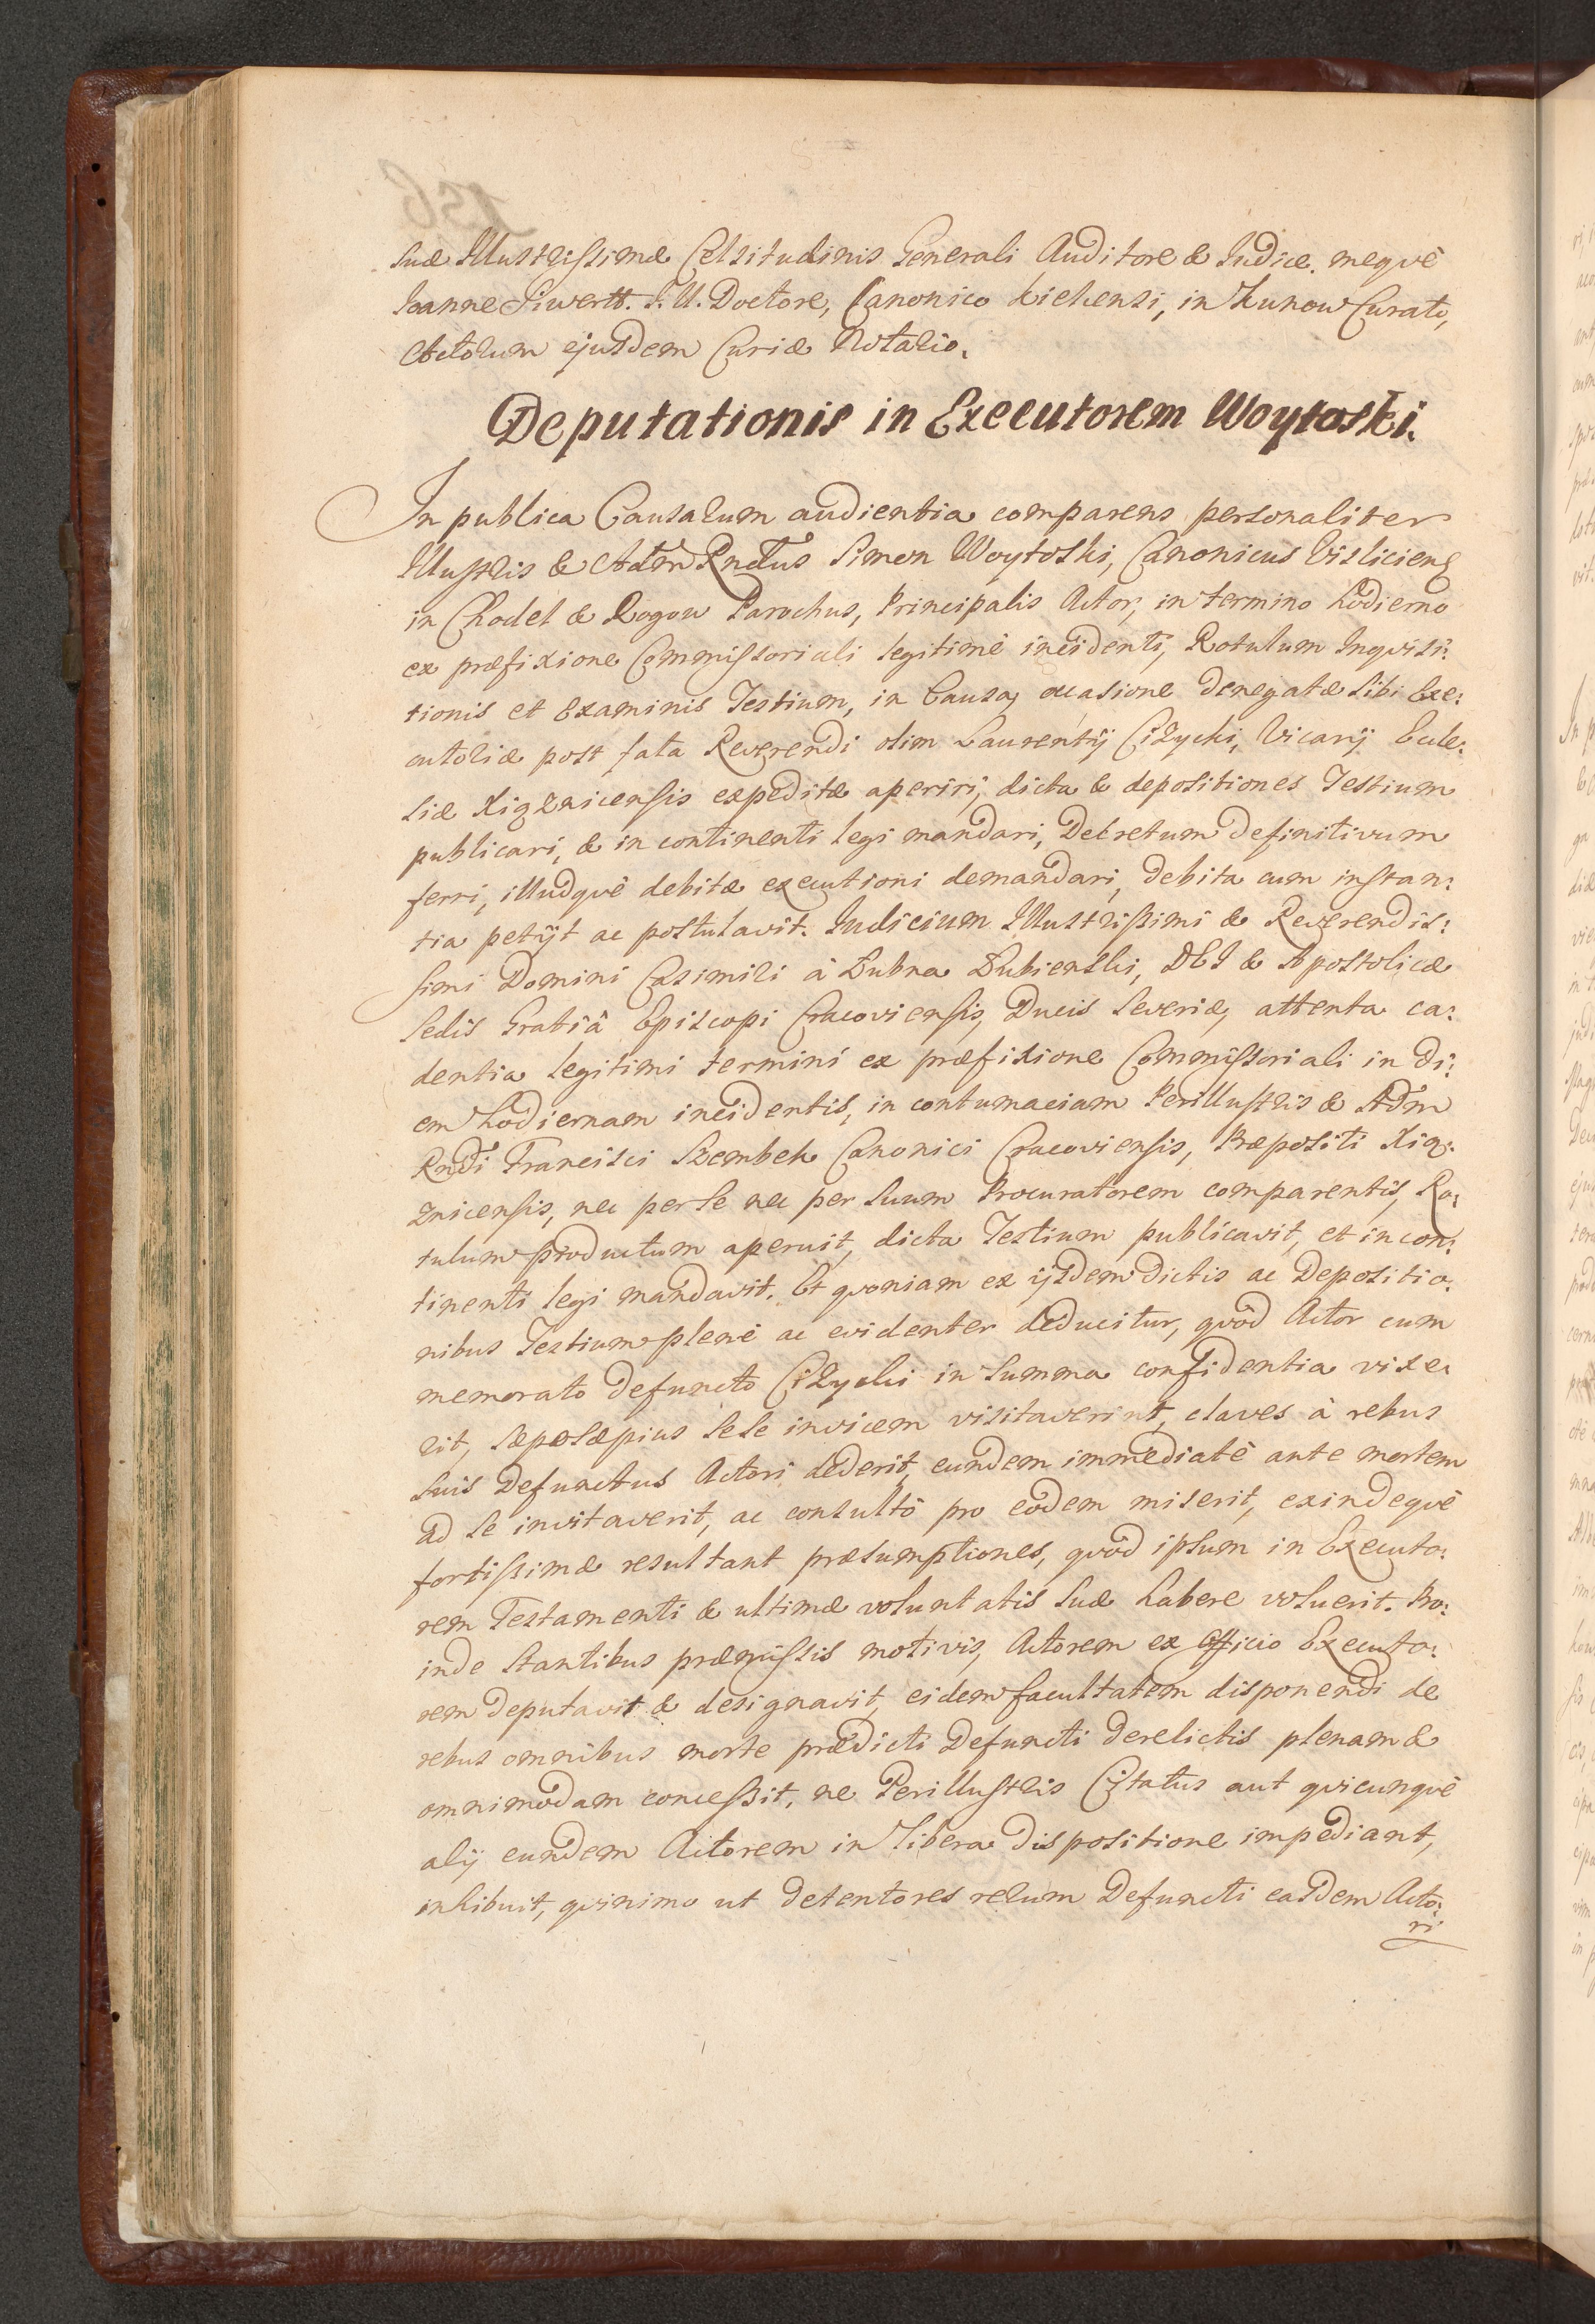 suæ Illustrissimæ Celsitudinis Generali Auditore & Iudice. meqvè
Ioanne Siwertt. I. U. Doctore, Canonico Kielcensi, in Kunow Curato,
Actorum ejusdem Curiæ Notario.
Deputationis in Executorem Woytoski.
In publica Causarum audientia comparens personaliter
Illustris & Adm Rndus Simon Woytoski, Canonicus Visliciens
in Chodel & Rogow Parochus, Principalis Actor, in termino hodierno
ex præfixione Commissoriali legitimè incidenti, Rotulum Inqvisi:
tionis et Examinis Testium, in Causa, occasione denegatæ sibi Exe:
cutoriæ post fata Reverendi olim Laurentij Cizycki, Vicarij Eccle:
siæ Xiąznicensis expeditæ aperiri, dicta & depositiones Testium
publicari, & in continenti legi mandari, Decretum definitivum
ferri, illudqvè debitæ executioni demandari, debita cum instan:
tia petijt ac postulavit. Iudicium Illustrissimi & Reverendis:
simi Domini Casimiri à Łubna Łubienski, DEI & Apostolicæ
Sedis Gratiâ Episcopi Cracoviensis, Ducis Severiæ, attenta ca:
dentia legitimi termini ex præfixione Commissoriali in di:
em hodiernam incidentis, in contumaciam Perillustris & Adm
Rndi Francisci Szembek Canonici Cracoviensis, Præpositi Xią:
znicensis, nec per se nec per suum Procuratorem comparentis, Ro:
tulum productum aperuit, dicta Testium publicavit, et in con:
tinenti legi mandavit. Et qvoniam ex ijsdem dictis ac Depositio:
nibus Testium plenè ac evidenter deducitur, qvòd Actor cum
memorato defuncto Cizycki in summa confidentia vixe:
rit, sæpe sæpius sese invicem visitaverint, claves à rebus
suis Defunctus Actori dederit, eundem immediatè ante mortem
ad se invitaverit, ac consultò pro eodem miserit, exindeqvè
fortissimæ resultant præsumptiones, qvòd ipsum in Executo:
rem Testamenti & ultimæ voluntatis suæ habere voluerit. Pro:
inde stantibus præmissis motivis, Actorem ex Officio Executo:
rem deputavit & designavit, eidem facultatem disponendi de
rebus omnibus morte prædicti Defuncti derelictis plenam &
omnimodam concessit, ne Perillustris Citatus aut qvicunqvè
alij eundem Actorem in libera dispositione impediant,
inhibuit, qvinimo ut detentores rerum Defuncti easdem Acto:
ri